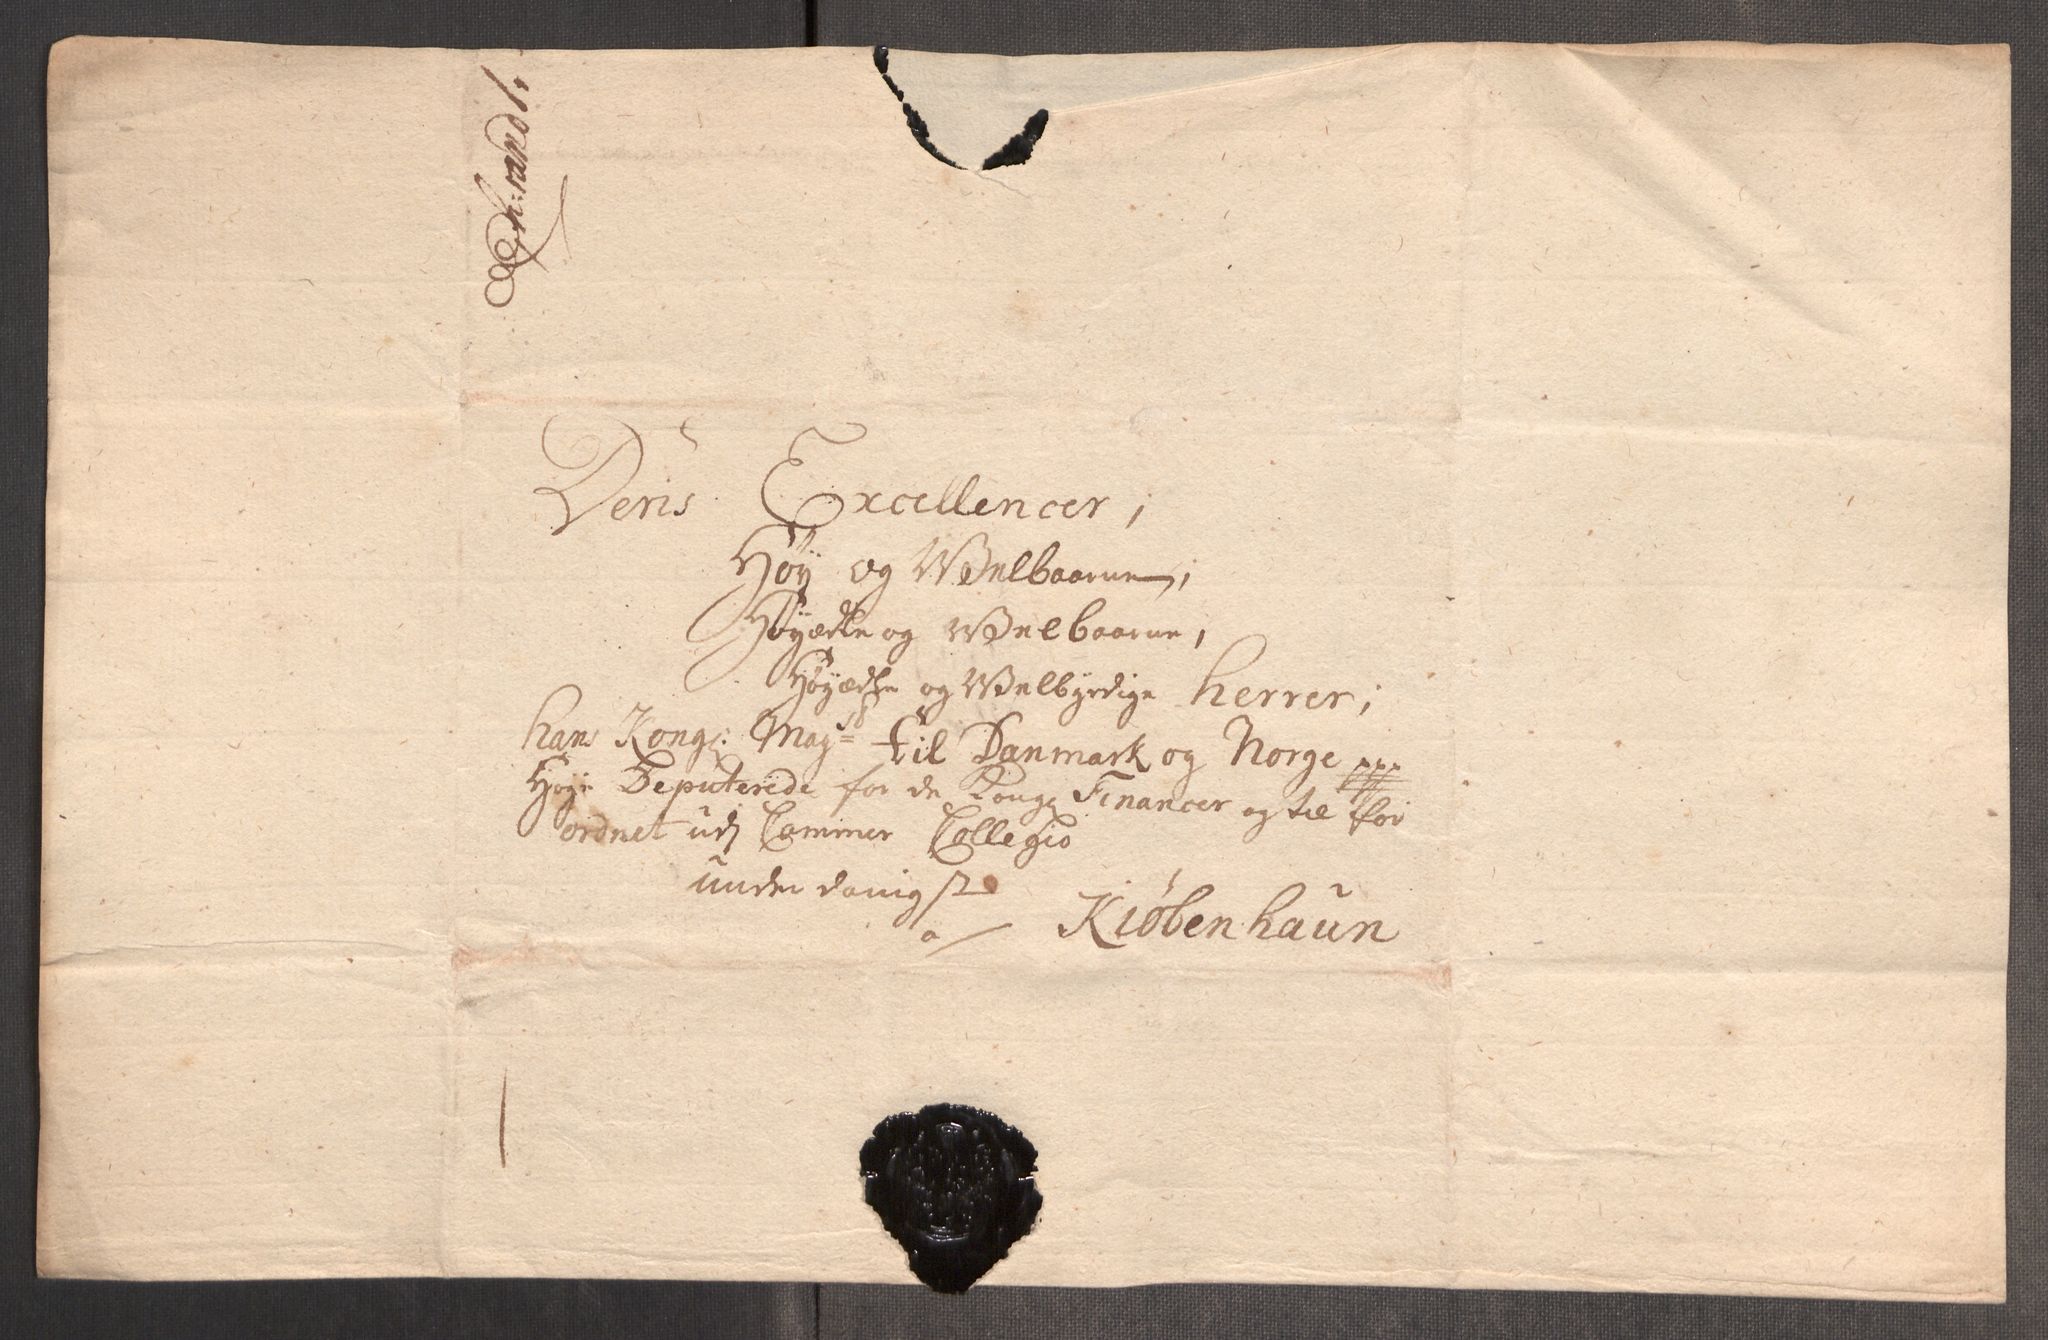 Deris Excellencer,
Höy og Welbaarne,
Höyædle og Welbaarne,
Höyædle og Welbyrdige herrer,
hans Kongl: Mayts til Danmark og Norge ppp
Höye Deputerede for de Kongl Financer og til for
ordnet udj Cammer Collegio
underdanigst
a Kiöbenhaun